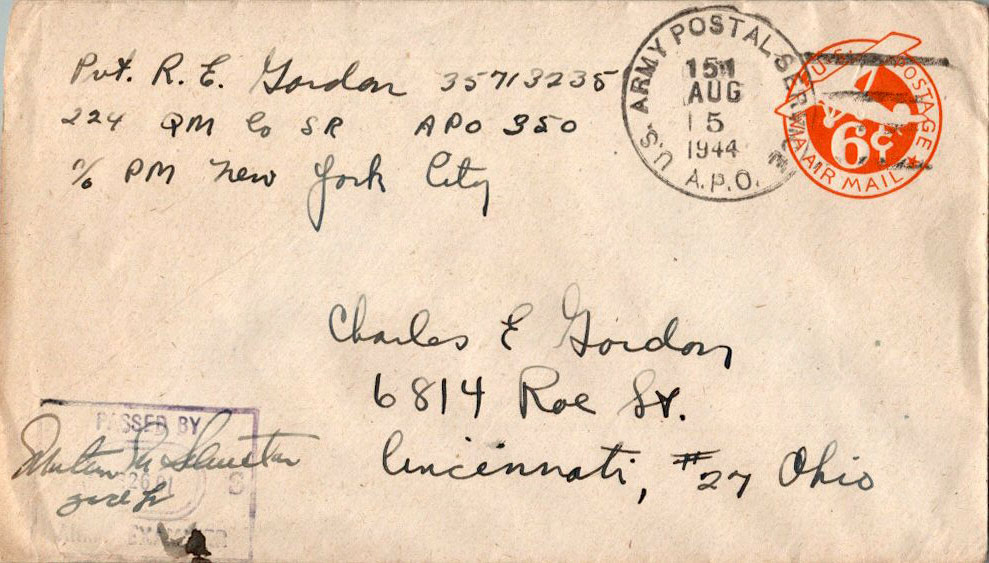 Pvt. R. E. Gordon 35713235
224 QM Co SR APO 350
c/o PM New York City
U.S. ARMY POSTAL SERVICE
AUG
15
1944
A.P.O.
POSTAGE
6¢
VIA AIR MAIL
Charles E Gordon
6814 Roe St.
Cincinnati, #27 Ohio
PASSED BY
ARMY EXAMINER